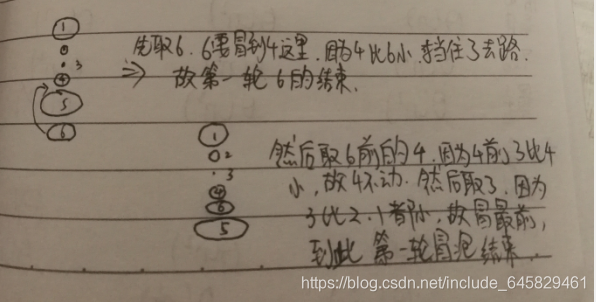 ①
○
· 3
④
⑤
⑥
⇒ 先取6. 6要冒到4这里. 因为4比6小. 挡住了去路.
故第一轮 6的结束.
①
○ 2
· 3
④
⑥
⑤
然后取6前的4. 因为4前的3比4
小, 故4不动. 然后取3. 因为
3比2、1都小, 故冒最前,
到此 第一轮冒泡结束.
https://blog.csdn.net/include_645829461